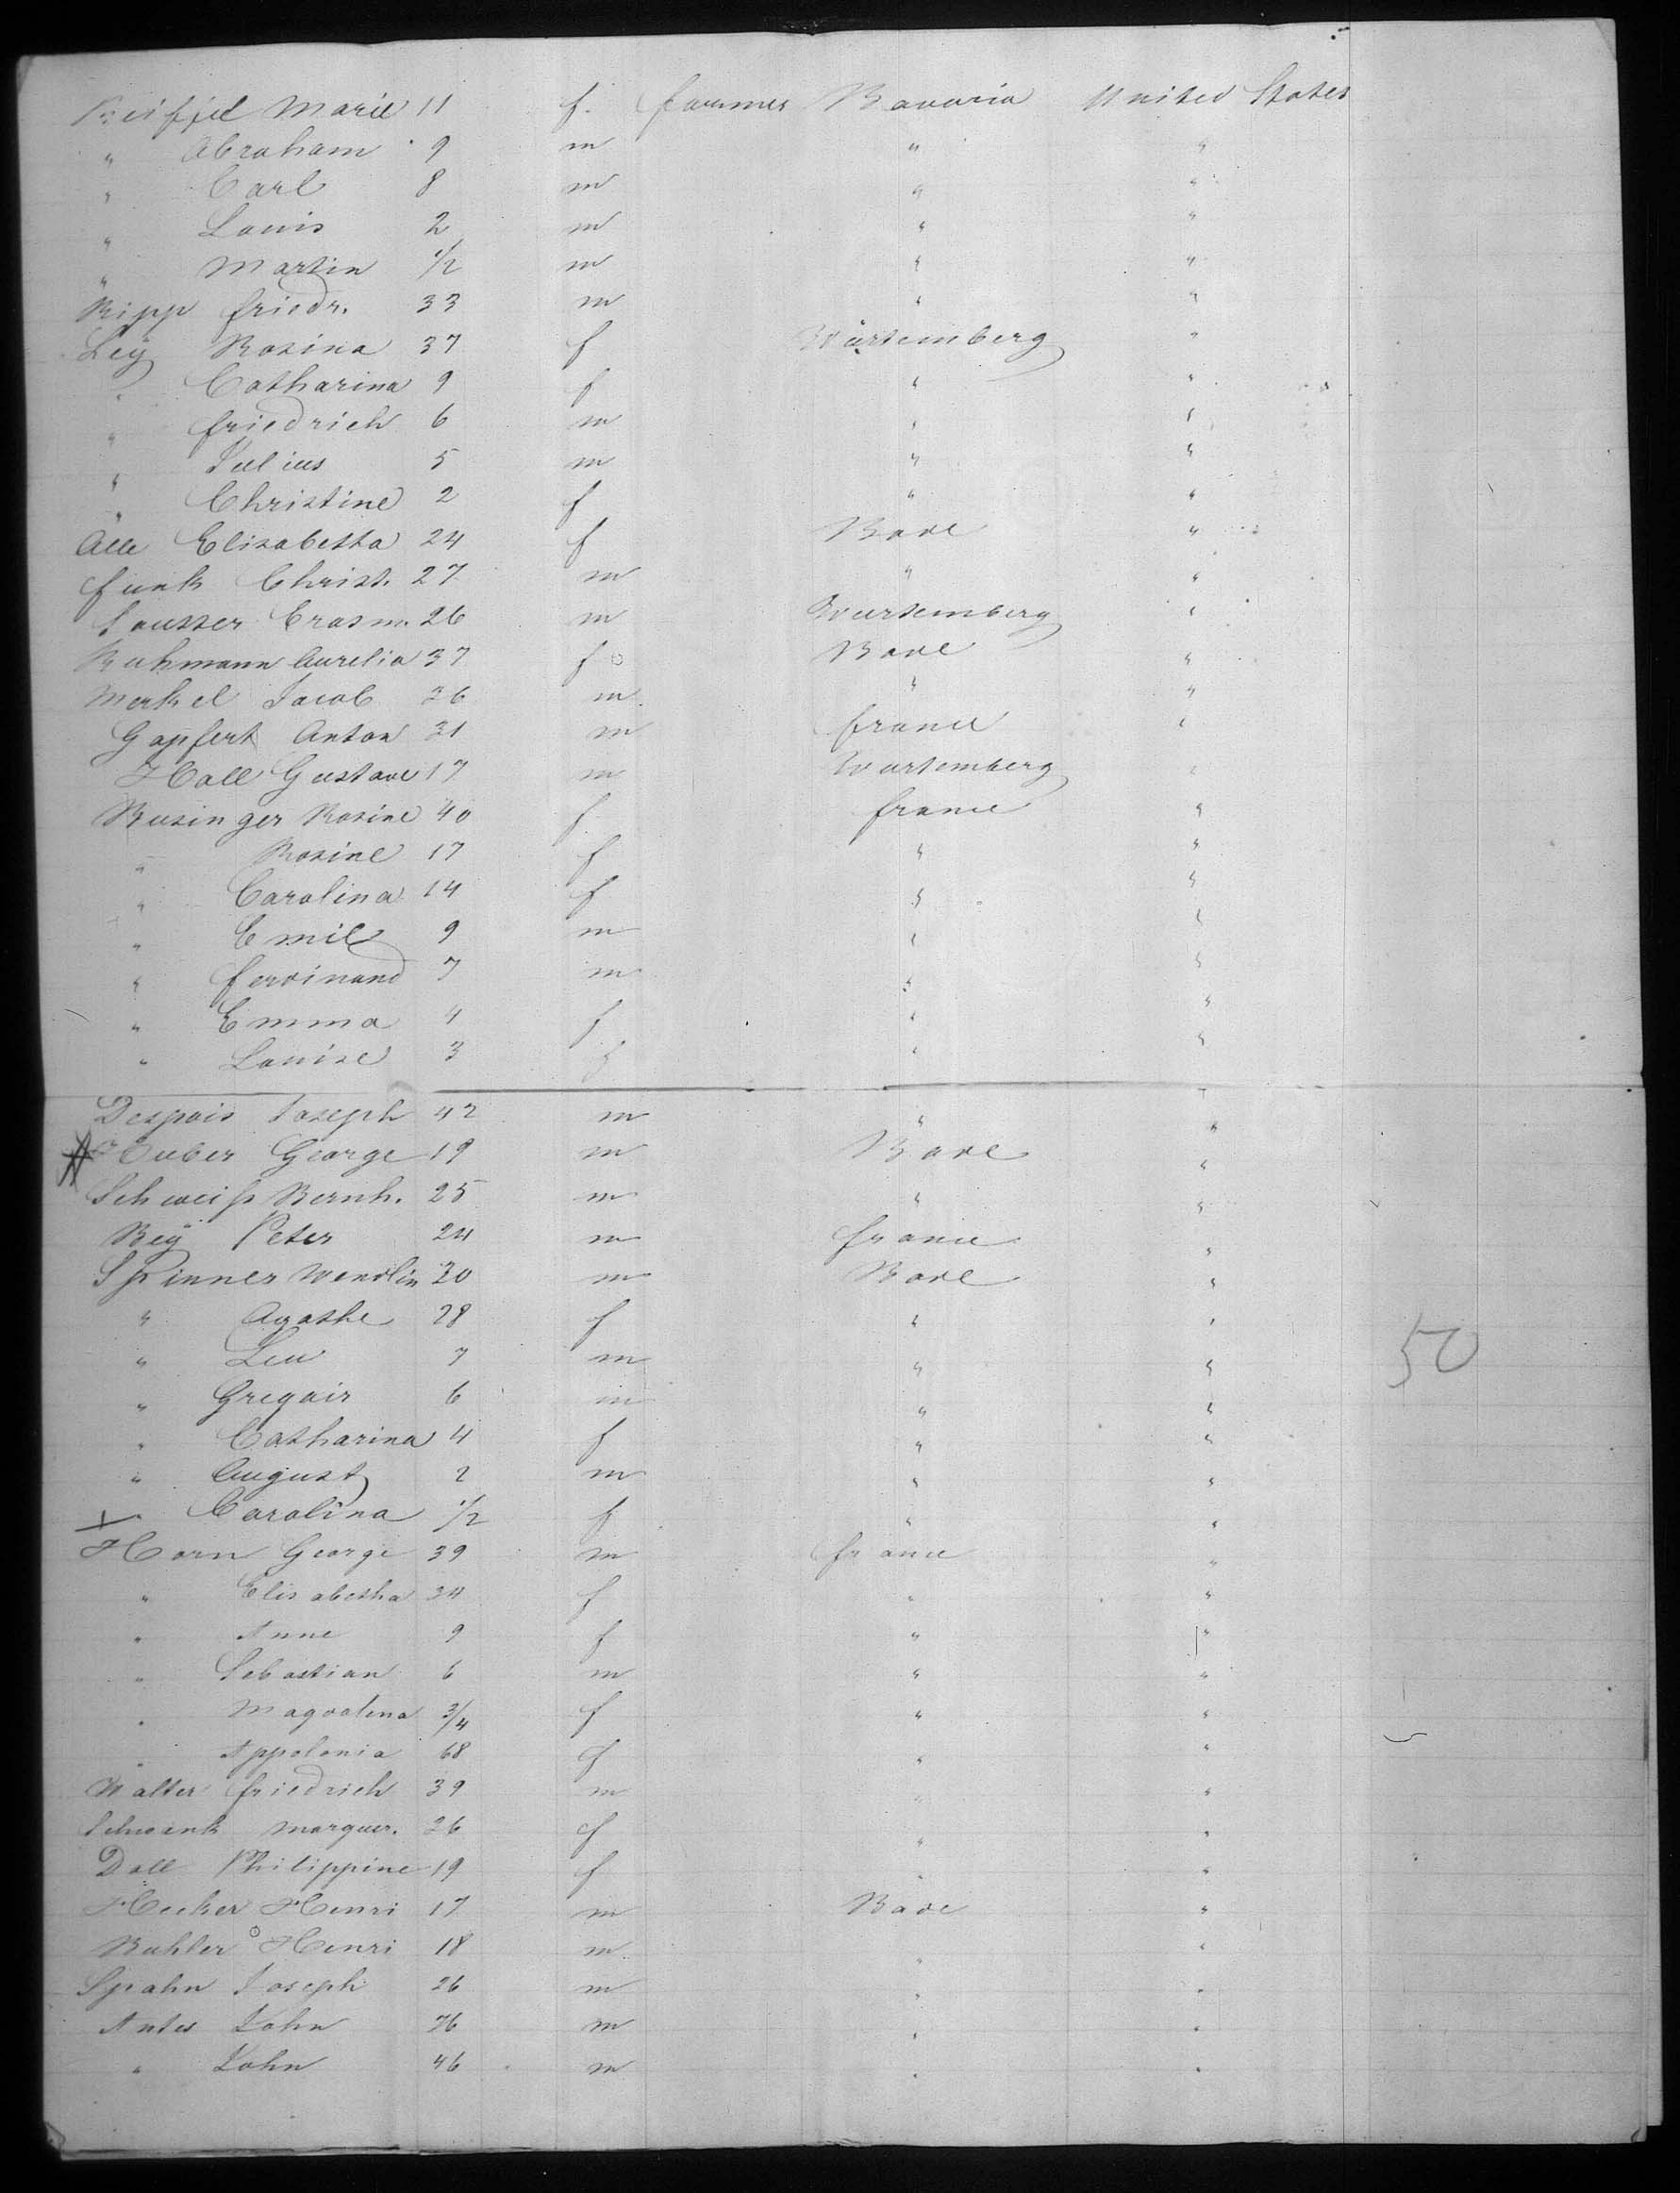 Marie 11 f. farmer Bavaria United States
" Abraham 9 m " "
" Carl 8 m " "
" Louis 2 m " "
" Martin 1/2 m " "
Ripp friedr. 33 m " "
Ley Rosina 37 f Würtemberg "
" Catharina 9 f " "
" friedrich 6 m " "
" Julius 5 m " "
" Christine 2 f " "
Alle Elisabetta 24 f Bade "
funk Christ. 27 m " "
Sausser Erasm. 26 m Wurtemberg "
Ruhmann Aurelia 37 f Bade "
Merkel Jacob 36 m " "
Gopfert Anton 31 m france "
Holl Gustave 17 m Wurtemberg "
Businger Rosine 40 f france "
" Rosine 17 f " "
" Carolina 14 f " "
" Emil 9 m " "
" ferdinand 7 m " "
" Emma 4 f " "
" Louise 3 f " "
Despois Joseph 42 m " "
Huber George 19 m Bade "
Schweiss Bernh. 25 m " "
Bey Peter 24 m france "
Spinner Wendlin 30 m Bade "
" Agathe 28 f " "
" Leu 7 m " "
" Gregoir 6 m " "
" Catharina 4 f " "
" August 2 m " "
" Carolina 1/2 f " "
Horn George 39 m france "
" Elisabetha 34 f " "
" Anne 9 f " "
" Sebastian 6 m " "
" Magdalena 3/4 f " "
" Appolonia 68 f " "
Walter friedrich 39 m " "
Schwenk Marguer. 26 f " "
Doll Philippine 19 f " "
Hecker Henri 17 m Bade "
Buhler Henri 18 m " "
Spahn Joseph 26 m " "
Antes John m " "
" John 46 m " "
50